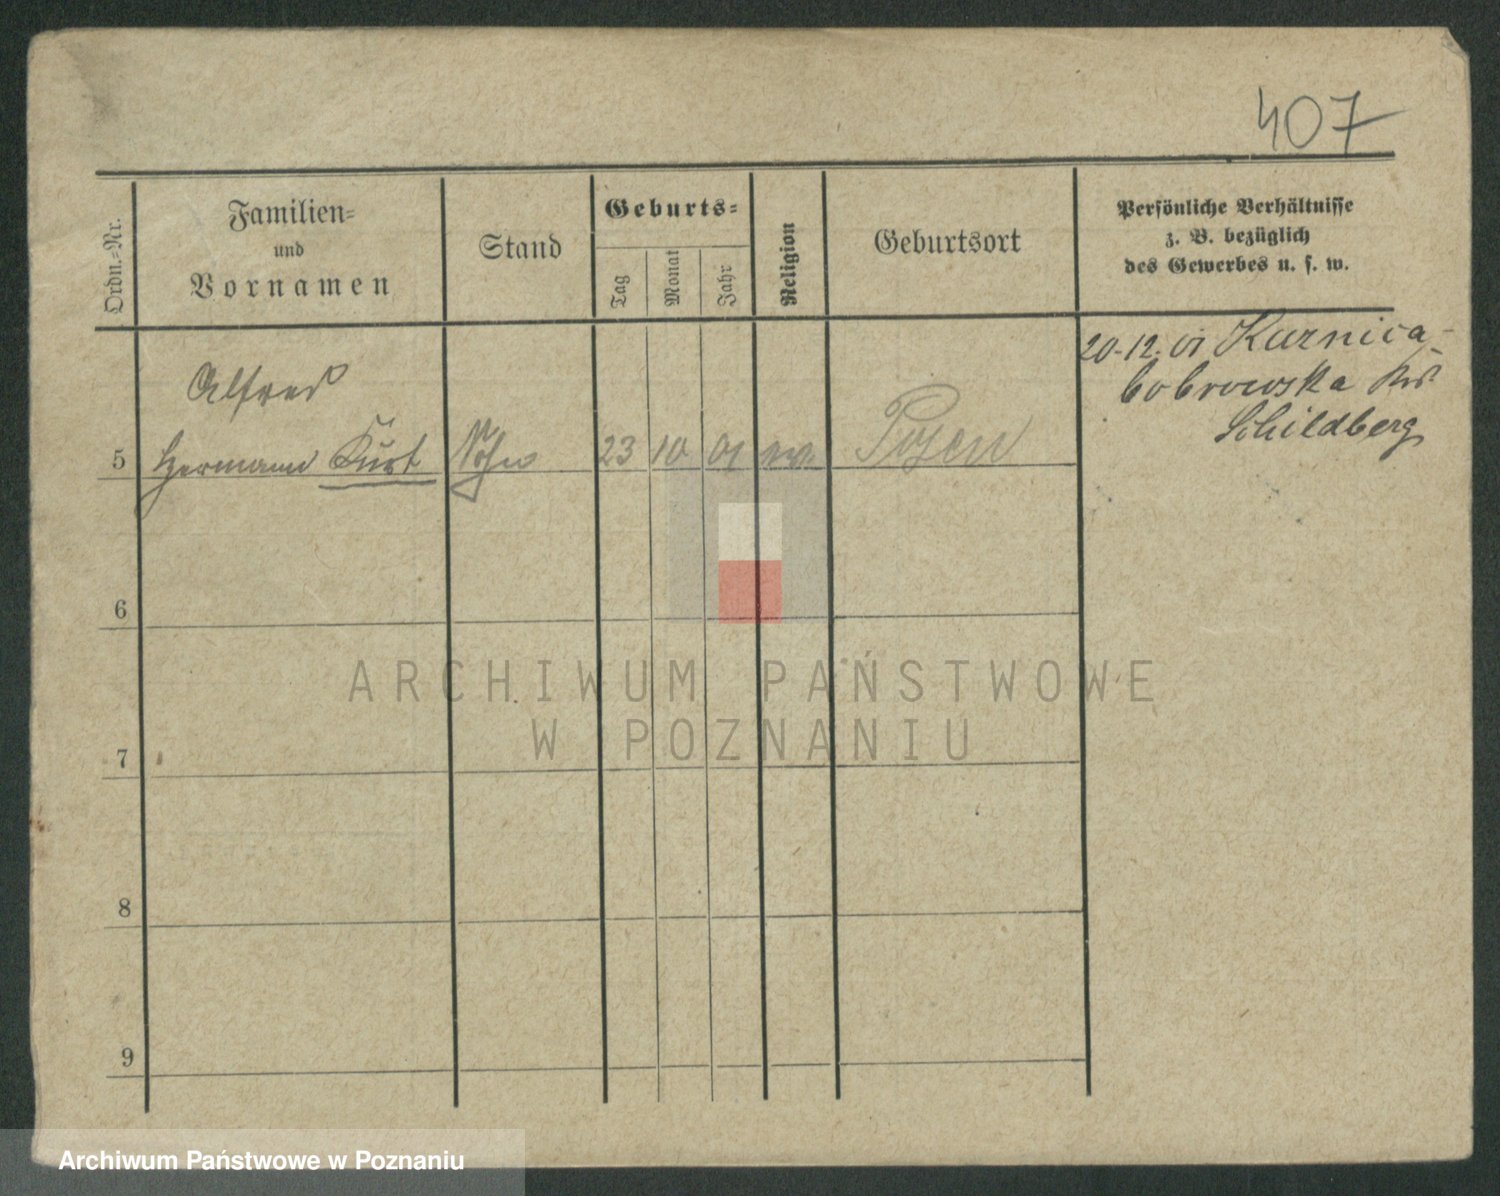 407
Ordn.-Nr.
Familien-
und
Vornamen
Stand
Geburts-
Tag
Monat
Jahr
Religion
Geburtsort
Persönliche Verhältnisse
z. B. bezüglich
des Gewerbes u. s. w.
20-12.01 Kuznica-
bobrowska Krs
Schildberg
Alfred
5 Hermann Kurt Sohn 23 10 01 ev. Posen
6
7
8
9
ARCHIWUM PAŃSTWOWE
W POZNANIU
Archiwum Państwowe w Poznaniu